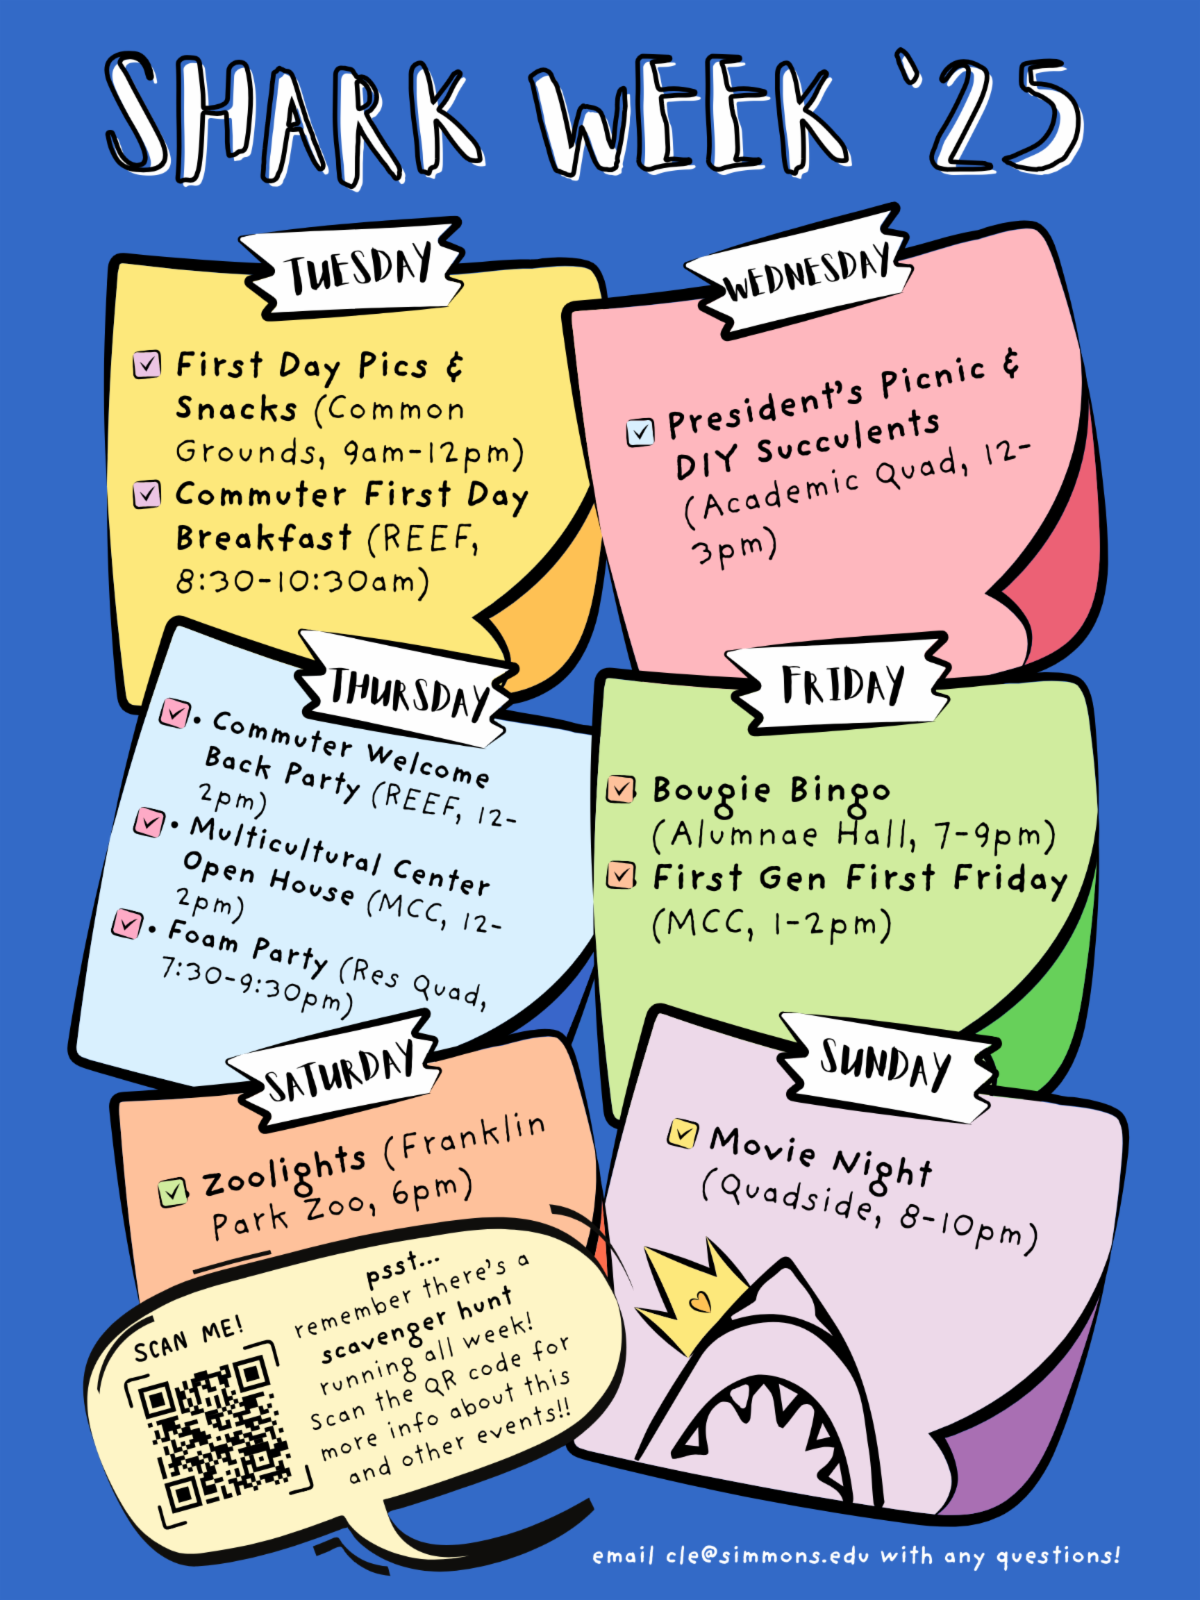 SHARK WEEK '25
TUESDAY
First Day Pics &
Snacks (Common
Grounds, 9am-12pm)
Commuter First Day
Breakfast (REEF,
8:30-10:30am)
WEDNESDAY
President's Picnic &
DIY Succulents
(Academic Quad, 12-
3pm)
THURSDAY
• Commuter Welcome
Back Party (REEF, 12-
2pm)
• Multicultural Center
Open House (MCC, 12-
2pm)
• Foam Party (Res Quad,
7:30-9:30pm)
FRIDAY
Bougie Bingo
(Alumnae Hall, 7-9pm)
First Gen First Friday
(MCC, 1-2pm)
SATURDAY
Zoolights (Franklin
Park Zoo, 6pm)
SUNDAY
Movie Night
(Quadside, 8-10pm)
SCAN ME!
psst...
remember there's a
scavenger hunt
running all week!
Scan the QR code for
more info about this
and other events!!
email cle@simmons.edu with any questions!